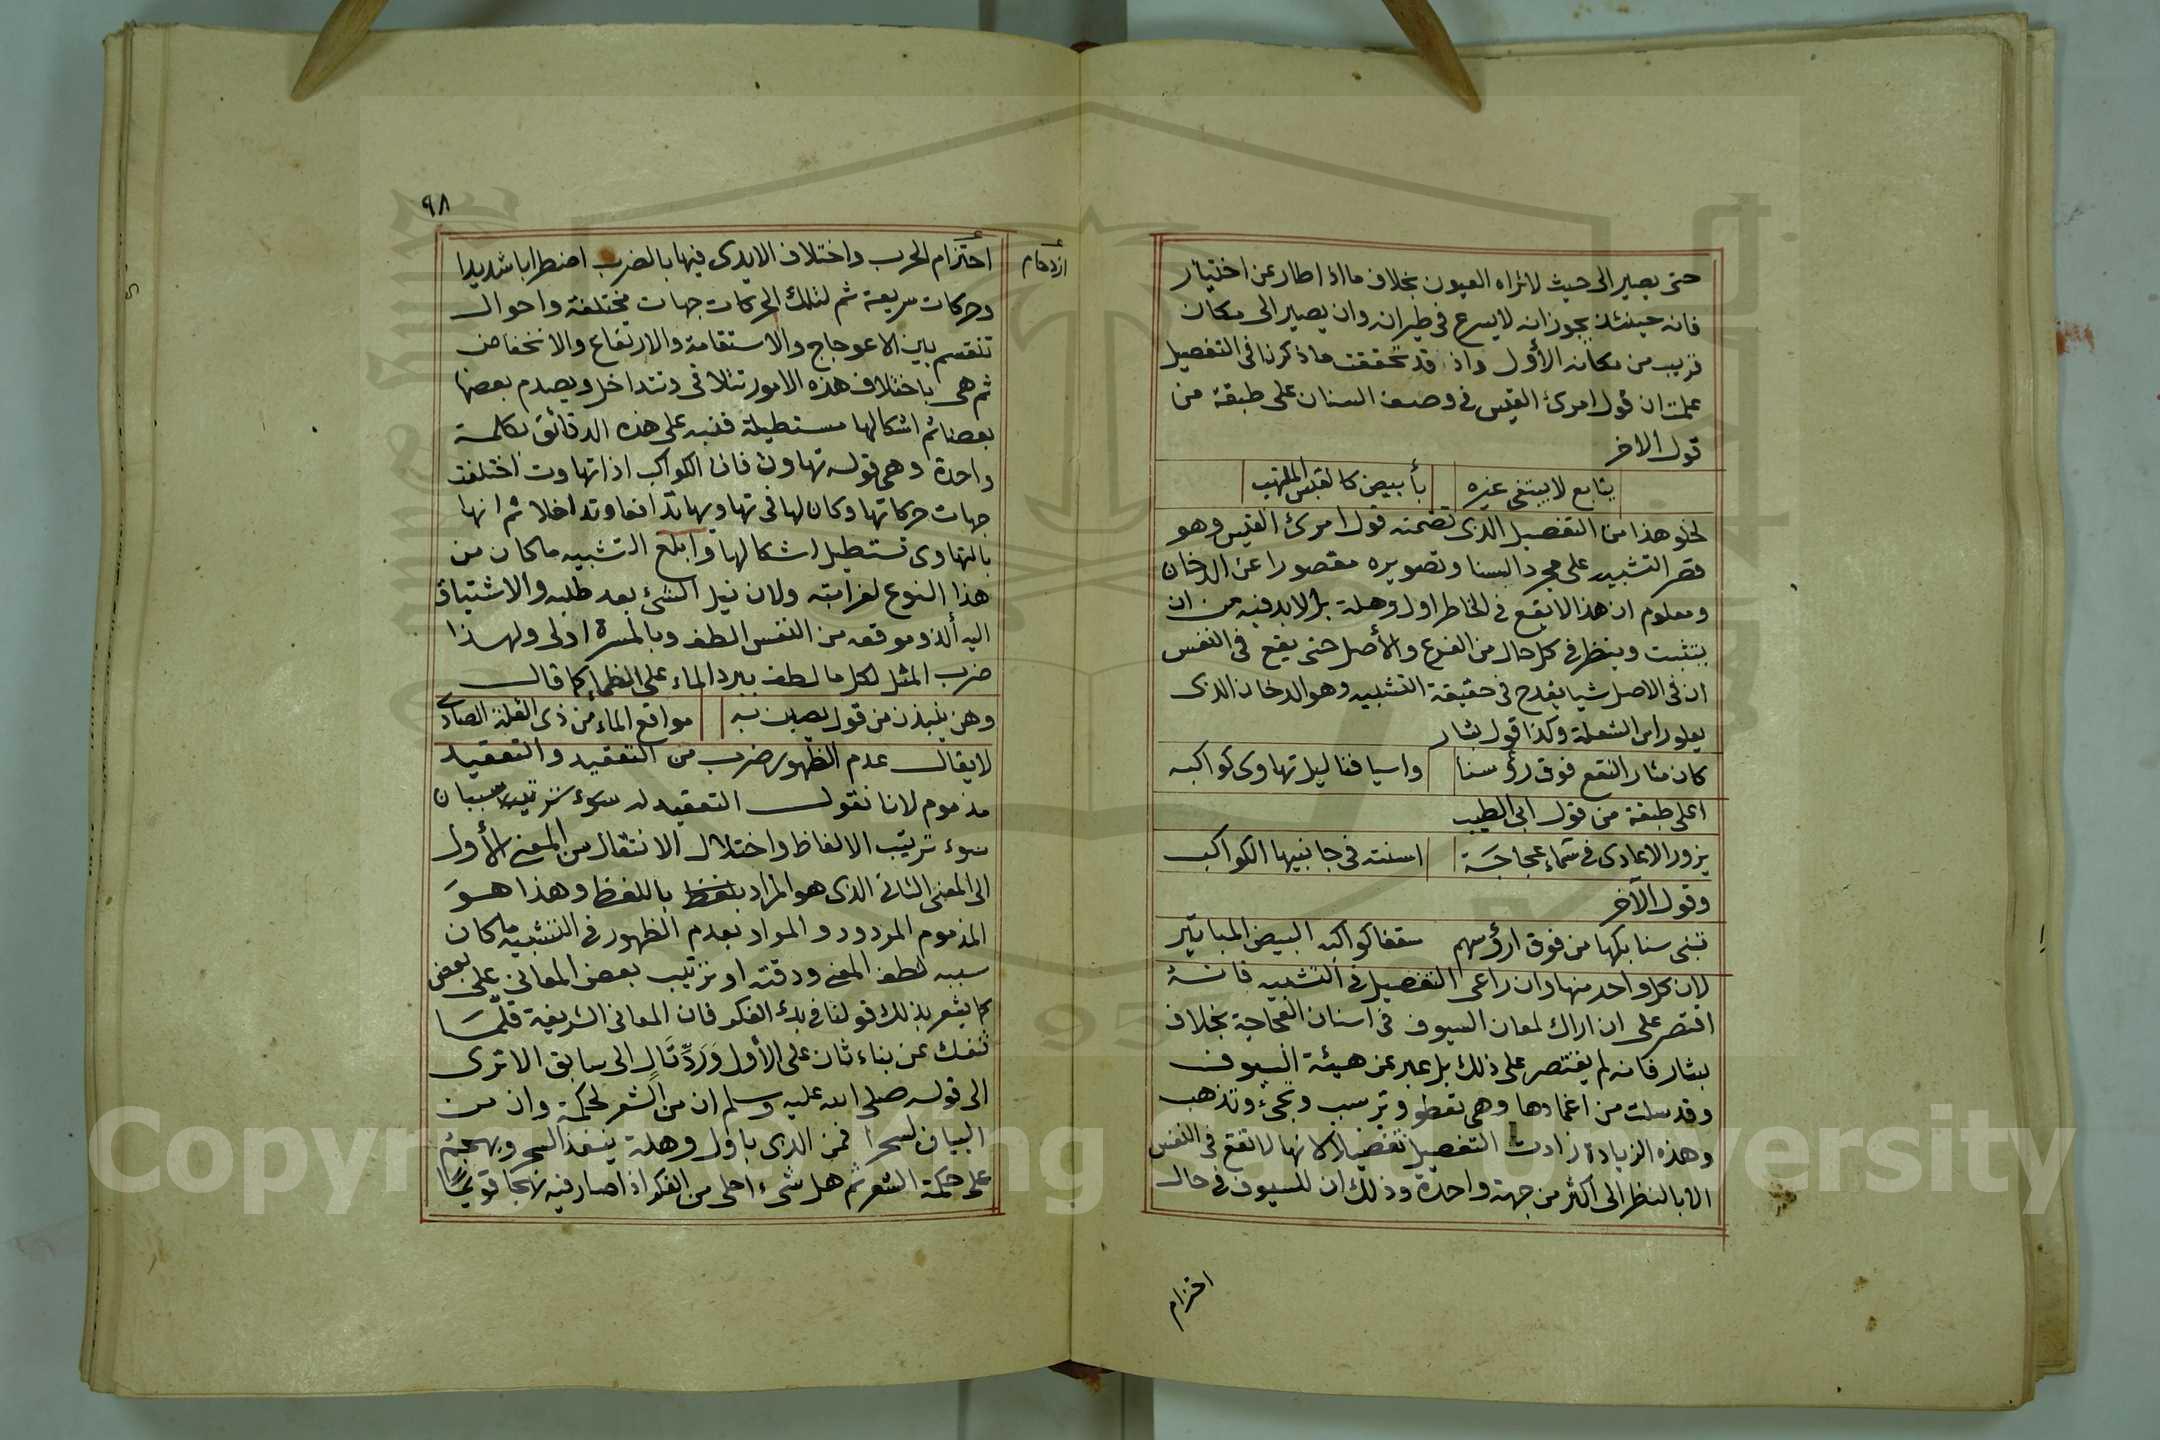 حتى يصير الى حيث لا تراه العيون بخلاف ما اذا طار عن اختيار
فانه حينئذ يجوز ان لا يسرع في طيرانه وان يصير الى مكان
قريب من مكانه الأول واذ قد تحققت ما ذكرنا في التفصيل
علمت ان قول امرئ القيس في وصف السنان على طبقة من
قول الاخر
يتابع لا يبتغى غيره بأبيض كالقبس الملتهب
لخلو هذا من التفصيل الذى تضمنه قول امرئ القيس وهو
قصر التشبيه على مجرد السنا وتصويره مقصورا عن الدخان
ومعلوم ان هذا لا يقع في الخاطر اول وهلة بل لا بد فيه من ان
يتثبت وينظر في كل حال من الفرع والأصل حتى يقع في النفس
ان في الاصل شيا يقدح في حقيقة التشبيه وهو الدخان الذى
يعلو راس الشعلة وكذا قول بشار
كان مثار النقع فوق رؤسنا واسيافنا ليل تهاوى كواكبه
اعلى طبقة من قول ابى الطيب
يزور الاعادى في سماء عجاجة اسنته في جانبيها الكواكب
وقول الآخر
تبنى سنابكها من فوق ارؤسهم سقفا كواكبه البيض المباتير
لان كل واحد منها وان راعى التفصيل في التشبيه فانه
اقتصر على ان اراك لمعان السيوف في اسنان العجاجة بخلاف
بشار فانه لم يقتصر على ذلك بل عبر عن هيئة السيوف
وقد سلت من اغمادها وهى تعلو وترسب وتجيء وتذهب
وهذه الزيادة زادت التفصيل تفضيلا لانها لا تقع في النفس
الا بالنظر الى اكثر من جهة واحدة وذلك ان للسيوف في حال
احتزام
٩٨
ازدحام
احتزام الحرب واختلاف الايدى فيها بالضرب اضطرابا شديدا
وحركات سريعة ثم لتلك الحركات جهات مختلفة واحوال
تنقسم بين الاعوجاج والاستقامة والارتفاع والانخفاض
ثم هى باختلاف هذه الامور تتلاقى وتتداخل ويصدم بعضها
بعضا ثم اشكالها مستطيلة فنبه على هذه الدقائق بكلمة
واحدة وهى قوله تهاوى فان الكواكب اذا تهاوت اختلفت
جهات حركاتها وكان لها في تهاويها تدافعا وتداخلا ثم انها
بالتهاوى تستطيل اشكالها وابلغ التشبيه ما كان من
هذا النوع لغرابته ولان نيل الشئ بعد طلبه والاشتياق
اليه ألذ وموقعه من النفس الطف وبالمسرة اولى ولهذا
ضرب المثل لكل ما لطف ببرد الماء على الظماء كما قال
وهن ينبذن من قول يصبن به مواقع الماء من ذى الغلة الصادى
لا يقال عدم الظهور ضرب من التعقيد والتعقيد
مذموم لانا نقول التعقيد له سببان
سوء ترتيب الالفاظ واختلال الانتقال من المعنى الأول
الى المعنى الثانى الذى هو المراد باللفظ وهذا هو
المذموم المردود والمراد بعدم الظهور في التشبيه ما كان
سببه لطف المعنى ودقته او ترتيب بعض المعانى على بعض
كما يشعر بذلك قولنا في بدء الفكر فان المعانى الشريفة قلما
تنفك عن بناء ثان على الأول ورد تال الى سابق الا ترى
الى قوله صلى الله عليه وسلم ان من الشعر لحكمة وان من
البيان لسحرا فمن الذى باول وهلة ينفذ السحر ويهجم
على حكمة الشعر ثم هل شىء احلى من الفكر اذا صادف نهجا قويما
Copyright © King Saud University